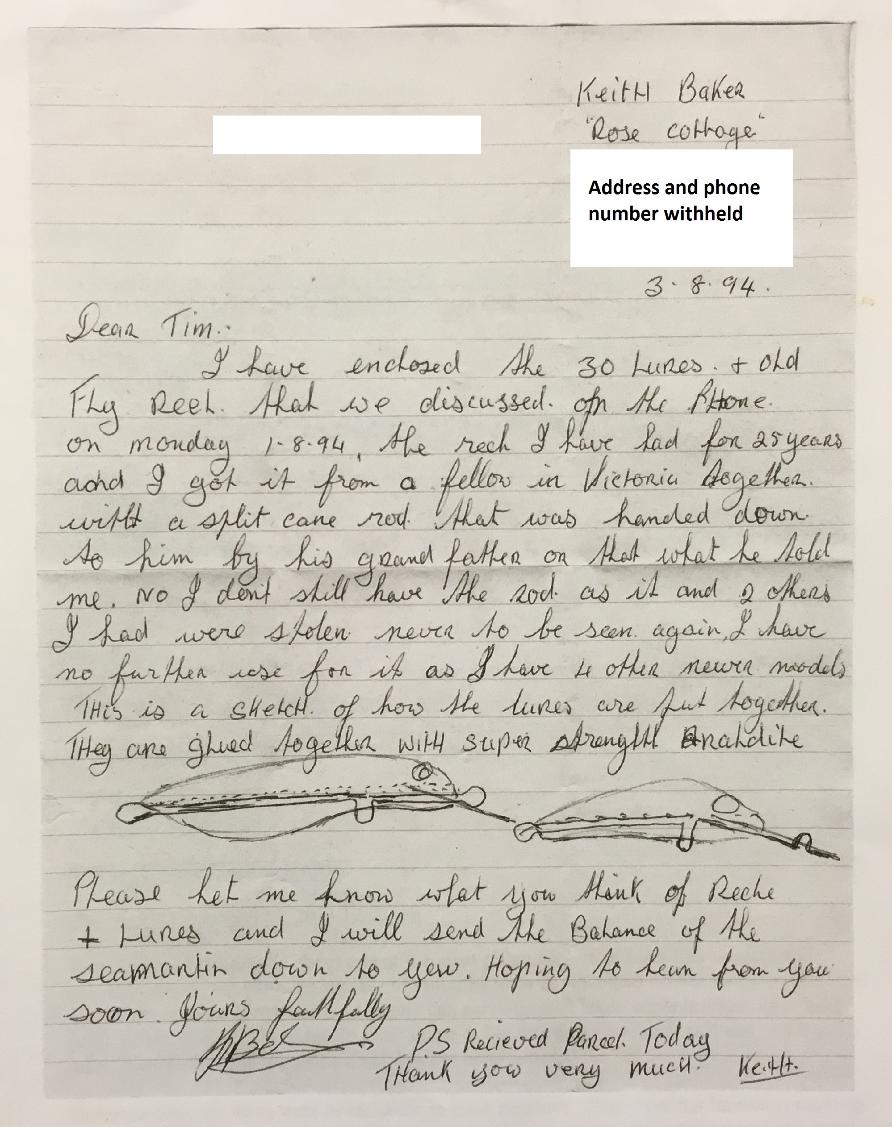 Keith Baker
"Rose cottage"
Address and phone
number withheld
3.8.94.
Dear Tim..
I have enclosed the 30 Lures. + old
Fly Reel. that we discussed. on the Phone.
on monday 1-8-94, the reel I have had for 25 years
and I got it from a fellow in Victoria together.
with a split cane rod. that was handed down.
to him by his grand father or that what he told
me. No I don't still have the rod. as it and 2 others
I had were stolen never to be seen again, I have
no further use for it as I have 4 other newer models
This is a sketch. of how the lures are put together.
They are glued together with super strength Arahdite
Please let me know what you think of Reele
+ Lures and I will send the Balance of the
seamartin down to yow. Hoping to hear from you
soon. Yours faithfully
PS Recieved Parcel. Today
Thank yow very much. Keith.